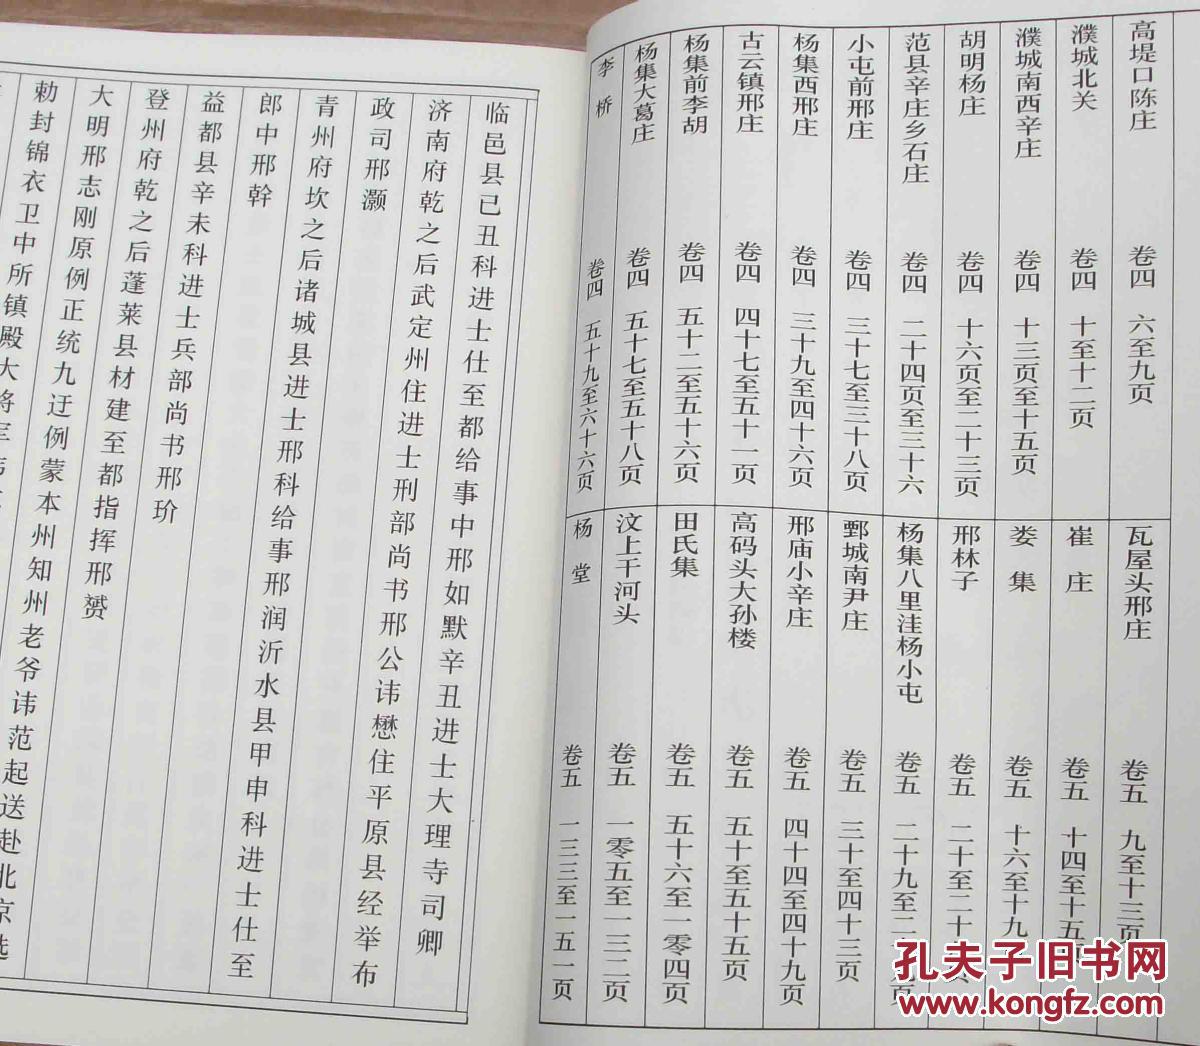 高堤口陈庄 卷四 六至九页
濮城北关 卷四 十至十二页
濮城南西辛庄 卷四 十三页至十五页
胡明杨庄 卷四 十六页至二十三页
范县辛庄乡石庄 卷四 二十四页至三十六
小屯前邢庄 卷四 三十七至三十八页
杨集西邢庄 卷四 三十九至四十六页
古云镇邢庄 卷四 四十七至五十一页
杨集前李胡 卷四 五十二至五十六页
杨集大葛庄 卷四 五十七至五十八页
李桥 卷四 五十九至六十六页
瓦屋头邢庄 卷五 九至十三页
崔庄 卷五 十四至十五页
娄集 卷五 十六至十九
邢林子 卷五 二十至二十 页
杨集八里洼杨小屯 卷五 二十九至二 页
鄄城南尹庄 卷五 三十至四十三页
邢庙小辛庄 卷五 四十四至四十九页
高码头大孙楼 卷五 五十至五十五页
田氏集 卷五 五十六至一零四页
汶上干河头 卷五 一零五至一三二页
杨堂 卷五 一三三至一五一页
临邑县己丑科进士仕至都给事中邢如默辛丑进士大理寺司卿
济南府乾之后武定州住进士刑部尚书邢公讳懋住平原县经举布
政司邢灏
青州府坎之后诸城县进士邢科给事邢润沂水县甲申科进士仕至
郎中邢幹
益都县辛未科进士兵部尚书邢玠
登州府乾之后蓬莱县材建至都指挥邢赟
大明邢志刚原例正统九迁例蒙本州知州老爷讳范起送赴北京选
勅封锦衣卫中所镇殿大将军
孔夫子旧书网
www.kongfz.com